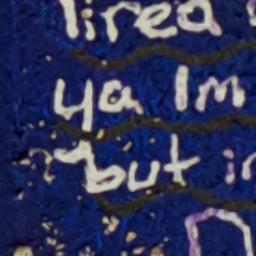 tired
ya Im
but in